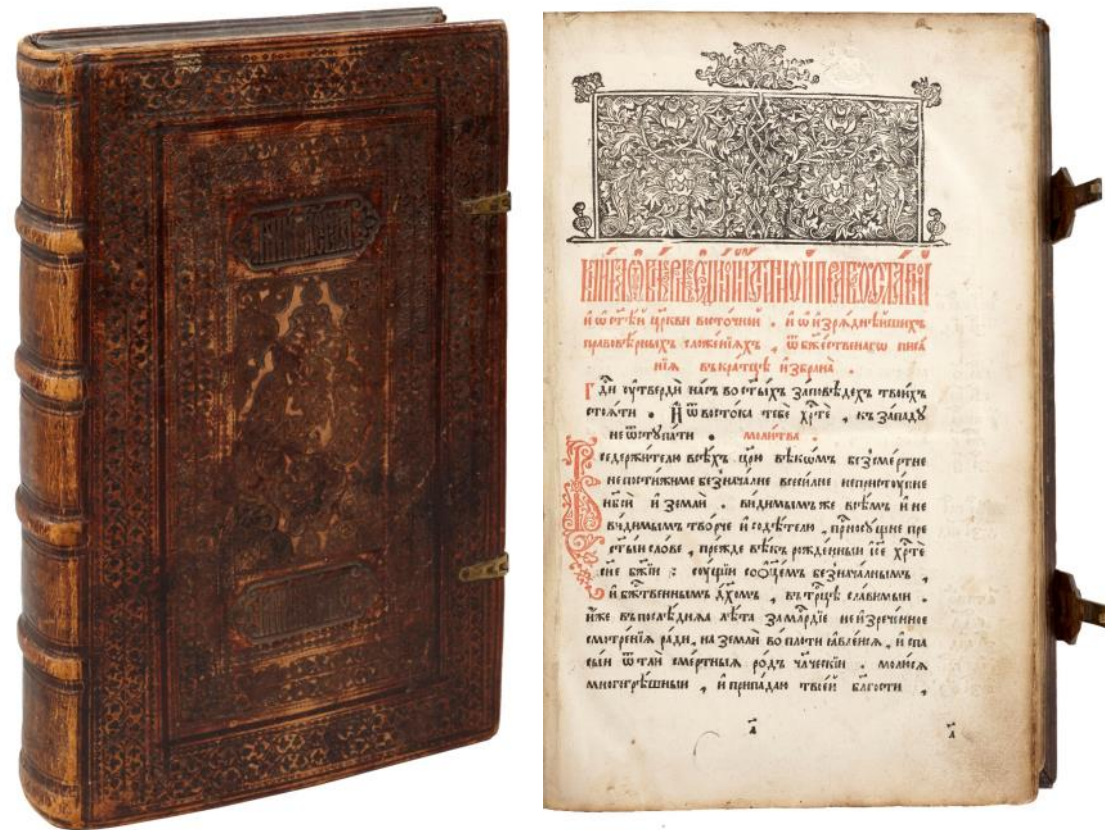 КНИ́ГА Ѡ҆ ВѢ́РѢ Е҆ДИ́НОЙ И҆́СТИННОЙ ПРАВОСЛА́ВНОЙ
и҆ ѡ҆ ст҃ѣ́й цр҃кви восто́чной . и҆ ѡ҆ и҆зрѧ́днѣйшихъ
правовѣ́рныхъ сложе́нїѧхъ , ѿ бж҃е́ственагѡ писа́
нїѧ въкра́тцѣ и҆збрана̀ .
Гдⷭ҇и ᲂу҆твердѝ на́съ во ст҃ы́хъ за́повѣдехъ твои́хъ
стоѧ́ти . И҆ ѿ восто́ка тебѐ хрⷭ҇тѐ , къ за́паду
не ѿступа́ти . моли́тва .
Вседержи́телю всѣ́хъ цр҃ю̀ вѣкѡ́мъ безсме́ртне
непостижи́ме безнача́лне всеси́лне непристꙋ́пне
нб҃сѝ и҆ землѝ . ви́димымъ же всѣ́мъ и҆ не
ви́димымъ тво́рче и҆ содѣ́телю , прⷭ҇носꙋ́щне пре
ст҃ы́й сло́ве , пре́жде вѣ́къ рожде́нный і҆с҃е хрⷭ҇тѐ
сн҃е бж҃їи : сꙋ́щїи со ѻ҆ц҃е́мъ безнача́лнымъ ,
и҆ бж҃е́ственнымъ дх҃омъ , въ трⷪ҇цѣ сла́вимый .
и҆́же въ послѣ́днѧѧ лѣ́та за млⷭ҇рдїе неи҆зрече́нное
смотре́нїѧ ра́ди , на землѝ во пло́ти ꙗ҆вле́йсѧ , и҆ спа
сы́й ѿ тлѝ сме́ртныѧ ро́дъ чл҃ческїй . молю́сѧ
многогрѣ́шный , и҆ припа́даю твое́й бл҃гости ,
а҃ а҃